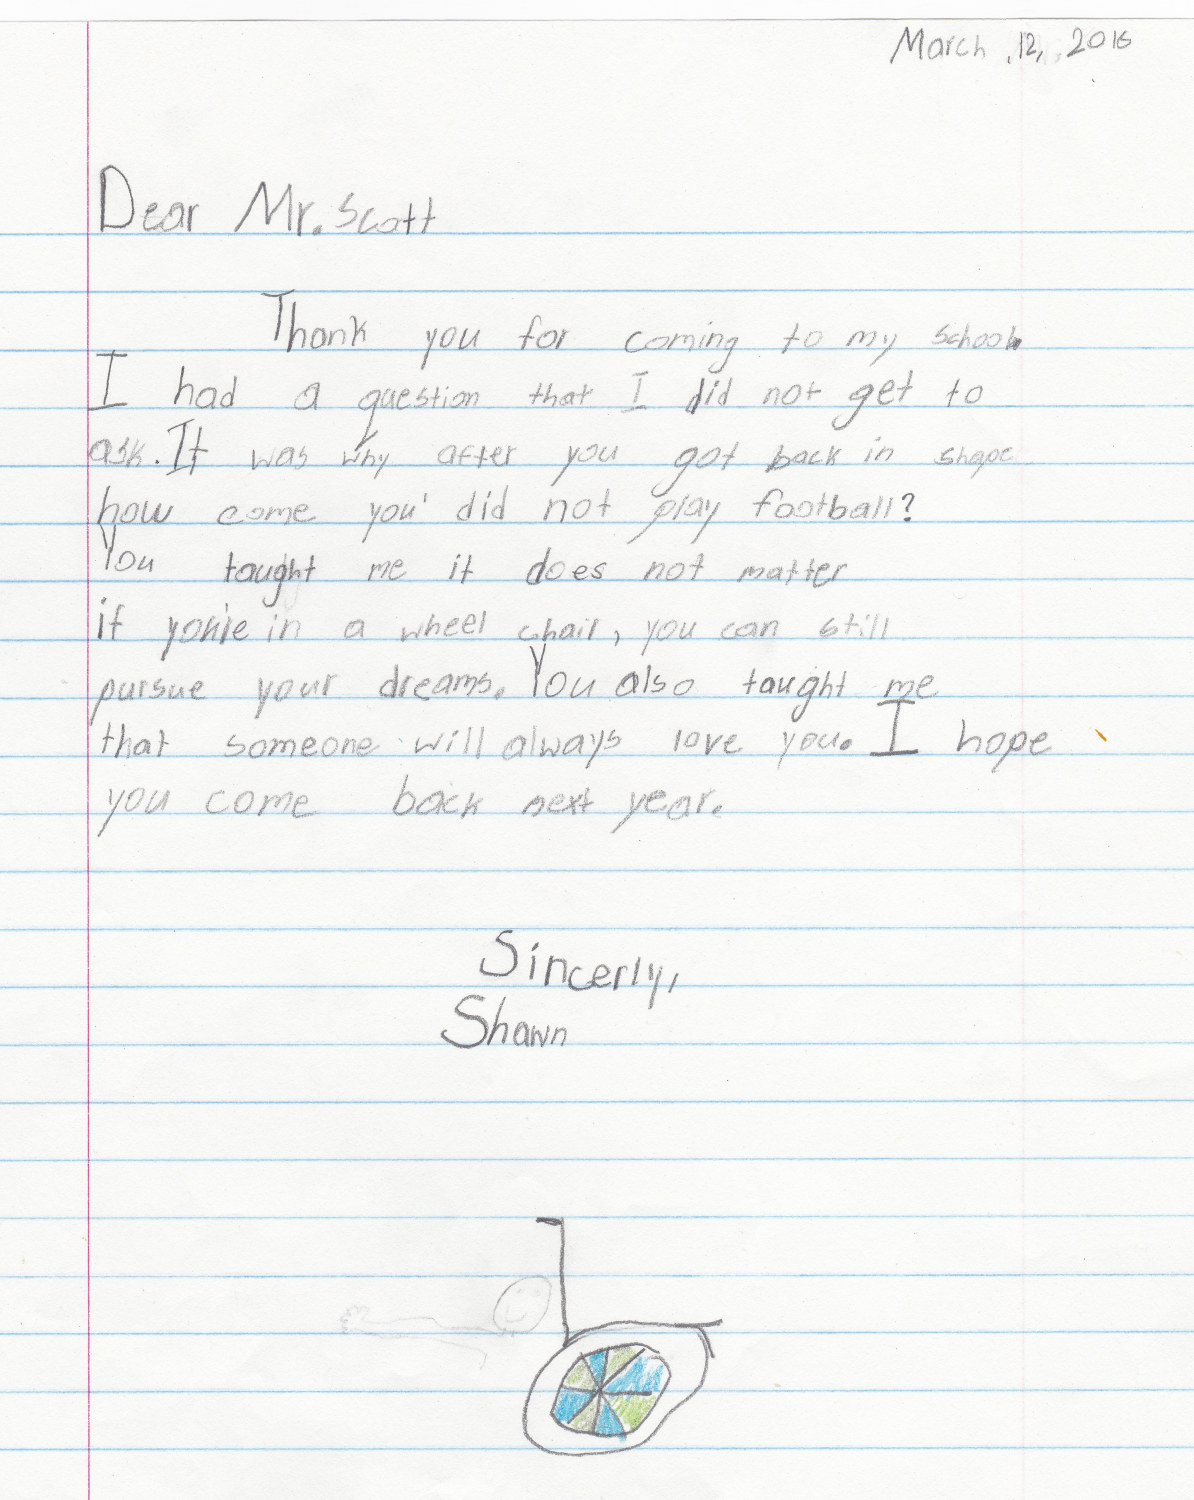 March 12, 2016
Dear Mr. Scott
Thank you for coming to my school.
I had a question that I did not get to
ask. It was why after you got back in shape
how come you did not play football?
You taught me it does not matter
if you're in a wheel chair, you can still
pursue your dreams. You also taught me
that someone will always love you. I hope
you come back next year.
Sincerly,
Shawn